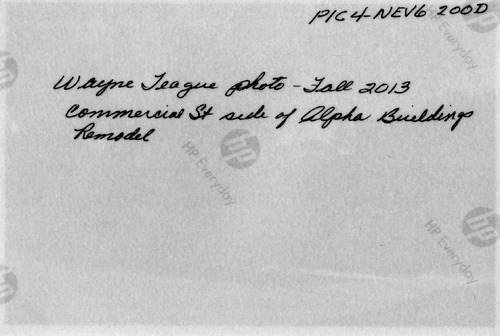 PIC4-NEV6 200D
Wayne Teague photo - Fall 2013
Commercial St side of Alpha Buildings
Remodel
hp
HP Everyday
HP Everyday
HP Everyday
hp